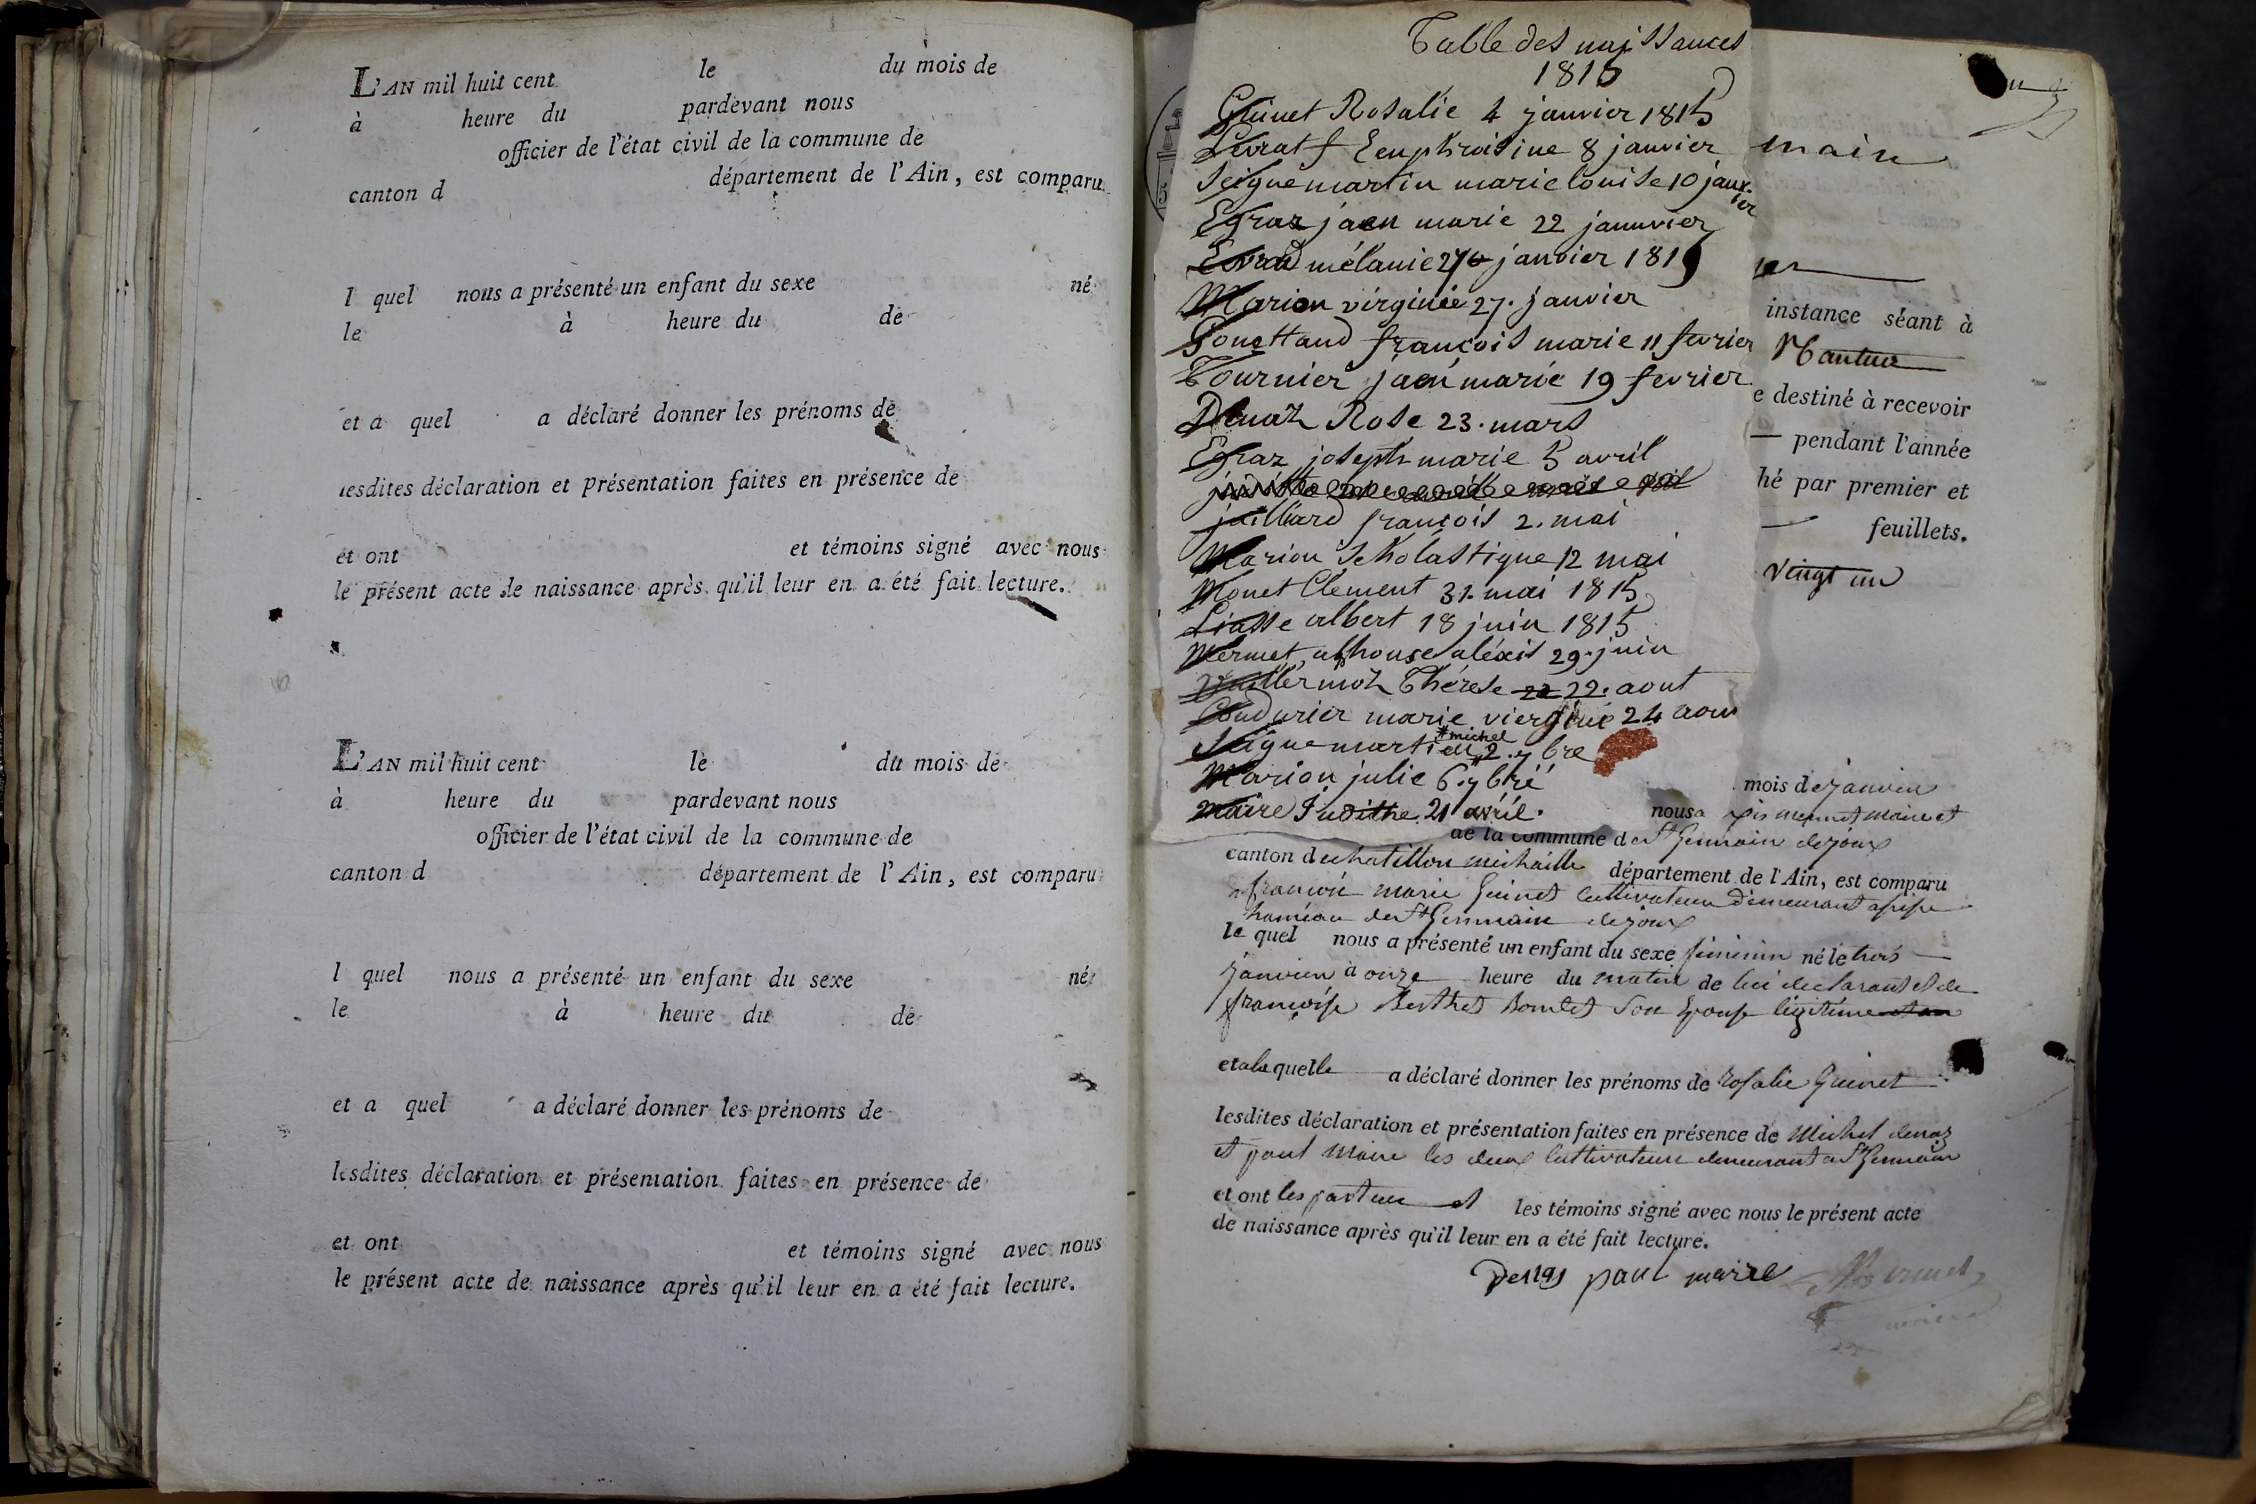 L'AN mil huit cent le du mois de
à heure du pardevant nous
officier de l'état civil de la commune de
canton d département de l'Ain, est comparu
l quel nous a présenté un enfant du sexe né
le à heure du de
et a quel a déclaré donner les prénoms de
lesdites déclaration et présentation faites en présence de
et ont et témoins signé avec nous
le présent acte de naissance après qu'il leur en a été fait lecture.
L'AN mil huit cent le du mois de
à heure du pardevant nous
officier de l'état civil de la commune de
canton d département de l'Ain, est comparu
l quel nous a présenté un enfant du sexe né
le à heure du de
et a quel a déclaré donner les prénoms de
lesdites déclaration et présentation faites en présence de
et ont et témoins signé avec nous
le présent acte de naissance après qu'il leur en a été fait lecture.
Table des naissances
1815
Guinet Rosalie 4 janvier 1815
Levrat f Eenphroisine 8 janvier
Seignemartin marie louise 10 janvier
Egraz jaen marie 22 januvier
Evrard mélanie 27 janvier 1815
Marion virginie 27. janvier
Gonettand françois marie 11 fevrier
Tournier jaen marie 19 fevrier
Denaz Rose 23. mars
Egraz joseph marie 5 avril
juilliard françois 2. mai
Marion Scholastique 12 mai
Monet Clement 31. mai 1815
Liasse albert 18 juin 1815
Mermet alphonse aléxis 29. juin
Vuillermoz Thérese 22 22. aout
Coudurier marie viergine 24 aou
Seignemartin # michel 2. 7 bre
Marion julie 6. 7 bre
maire Judithe. 21 avril.
un
main
instance séant à
Nantua
e destiné à recevoir
pendant l'année
hé par premier et
feuillets.
vingt un
mois de janvier
nous a xis mermet maire et
de la commune de St Germain de joux
canton de chatillon michaille département de l'Ain, est comparu
françois marie Guinet cultivateur demeurant a
hameau de St Germain de joux
le quel nous a présenté un enfant du sexe feminin né le trois
janvier à onze heure du matin de lui declarant et de
françoise Berthet Bombet son Epouse légitime
et a laquelle a déclaré donner les prénoms de rosalie Guinet
lesdites déclaration et présentation faites en présence de Michel denaz
et paul Maire les deux Cultivateurs demeurant a St Germain
et ont les parties et les témoins signé avec nous le présent acte
de naissance après qu'il leur en a été fait lecture.
Denas paul maire Mermet